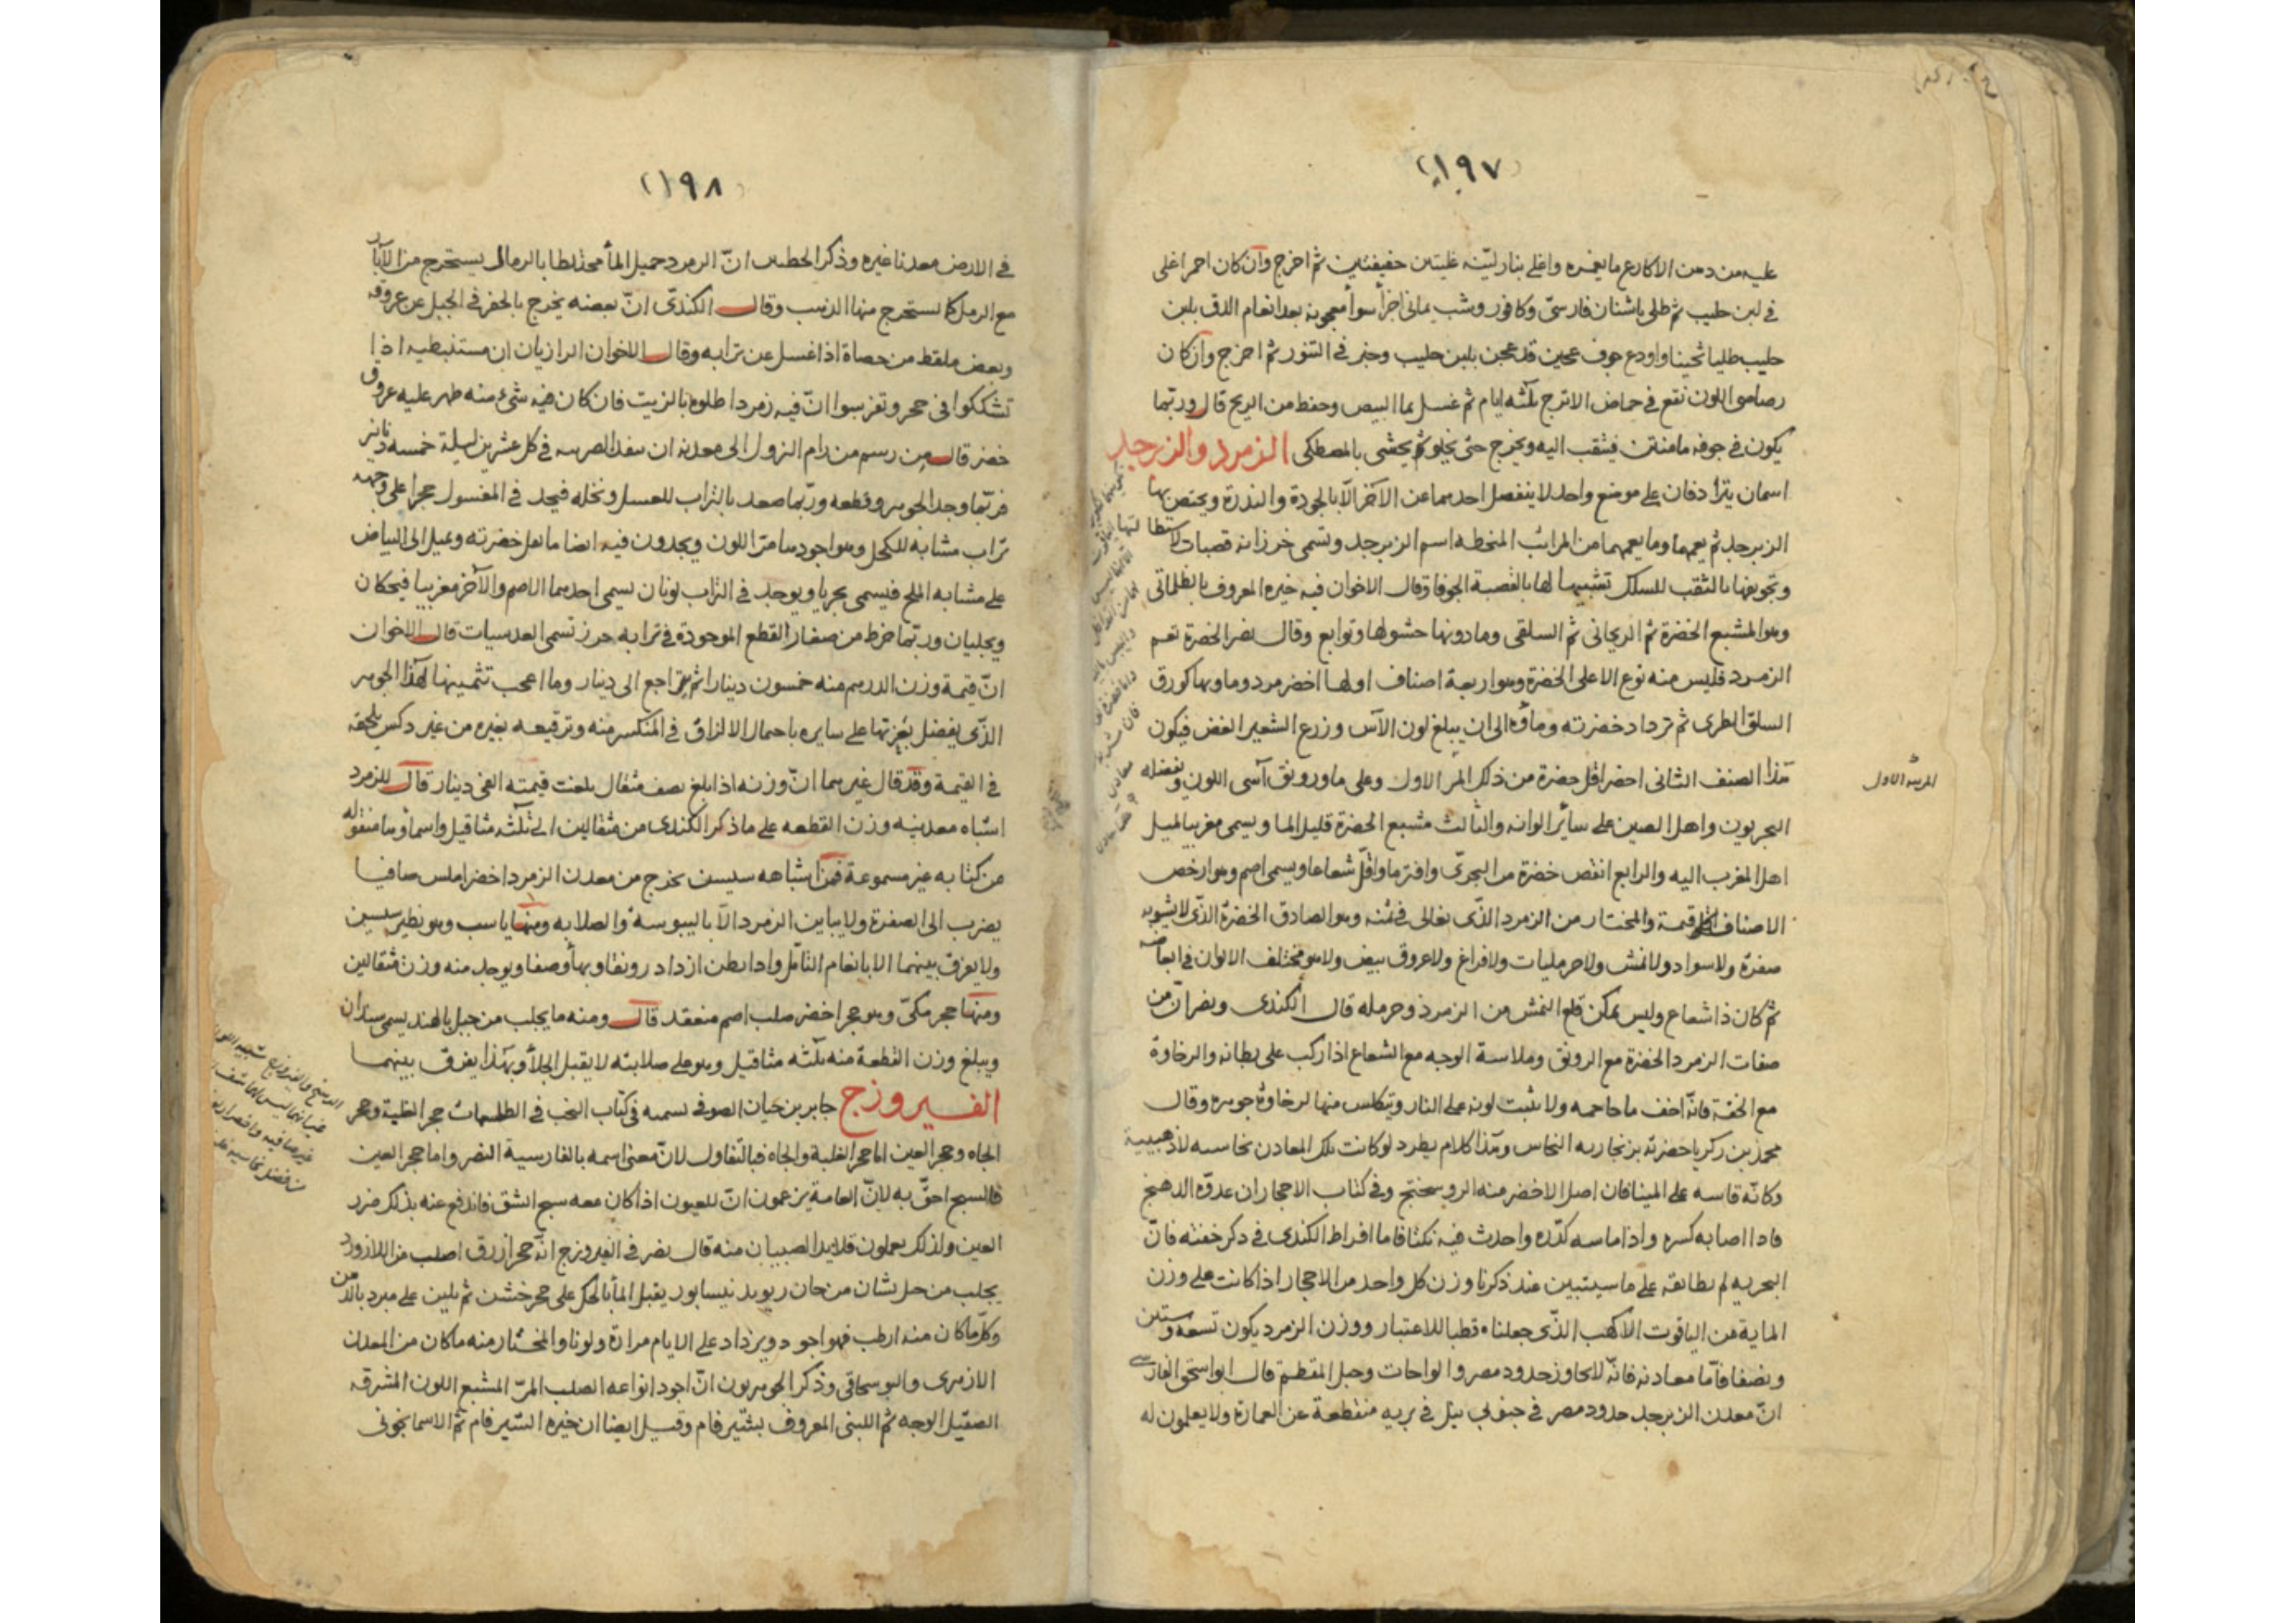 (١٩٧)
عليه من دهن الاكارع ما يغمره واغلى بنار لينه غليتين خفيفتين ثم اخرج وان كان احمر اغلى
في لبن حليب ثم طلى باشنان فارسىّ وكافور وشب يمانى اجزأ سوأ معجونه بعد انعام الدق بلبن
حليب طليا ثخينا واودع جوف عجين قد عجن بلبن حليب وخبز في التنور ثم اخرج وان كان
رصاصى اللون نقع في حماض الاترج ثلثه ايام ثم غسل بما البيض وحفظ من الريح قال وربّما
يكون في جوفه فيثقب اليه ويخرج حتى يخلو ثم يحشى بالمصطكى الزمرد والزبرجد
اسمان يترادفان على موضع واحد لا ينفصل احدهما عن الآخر الّا بالجودة والندرة ويختص بها
الزبرجد ثم يعمها وما يعمهما من المراتب المنحطه اسم الزبرجد وتسمى خرزاته قصبات لاستطالتها
وتجويفها بالثقب للسلك تشبيها لها بالقصبة الجوفا وقال الاخوان فيه خيره المعروف بالظلمانى
وهو المشبع الخضرة ثم الريحانى ثم السلقى وما دونها حشولها وتوابع وقال نصر الخضرة تعم
الزمرد فليس منه نوع الا على الخضرة وهو اربعة اصناف اولها اخضر مرد وماوها كورق
السلق الطرى ثم تزداد خضرته وماؤه الى ان يبلغ لون الآس وزرع الشعير الغض فيكون
هذا الصنف الثانى اخضر اقل خضرة من ذلك المر الاول وعلى ما ورونق آسى اللون ويفضله
البحريون واهل الصين على سائر الوانه والثالث مشبع الخضرة قليل الما ويسمى مغربيا لميل
اهل المغرب اليه والرابع انقص خضرة من البحرىّ وافتر ما واقلّ شعاعا ويسمى اصم وهو ارخص
الاصناف قيمة والمختار من الزمرد الذّى يغالى في ثمنه وهو الصادق الخضرة الذّى لا يشوبه
صفرة ولا سواد ولا نمش ولا حرمليات ولا فراغ ولا عروق بيض ولا هو مختلف الالوان في ابعاضه
ثم كان ذا شعاع وليس يمكن قلع النمش من الزمرذ وحرمله قال الكندى ونصر انّ من
صفات الزمرد الخضرة مع الرونق وملاسة الوجه مع الشعاع اذا ركب على بطانه والرخاوة
مع الخفّة فانّه اخف ما حاجمه ولا يثبت لونه على النار ويتكلس منها لرخاوة جوهره وقال
محمد بن زكريا خضرته بزنجاريه النحاس وهذا كلام يطرد لو كانت تلك المعادن نحاسه لا ذهبية
وكانّه قاسه على المينا فان اصل الاخضر منه الروسختج وفى كتاب الاحجار ان عدوّه الدهنج
فاذا اصابه كسره واذا ماسه كدّره واحدث فيه نكتا فاما افراط الكندى في ذكر خفته فانّ
البحريه لم يطابقه على ما سيتبين عند ذكرنا وزن كل واحد من الاحجار اذا كانت على وزن
الماية من الياقوت الاكهب الذّى جعلناه قطبا للاعتبار ووزن الزمرد يكون تسعه وستين
ونصفا فأمّا معادنه فانّه لا يجاوز حدود مصر والواحات وجبل المقطم قال ابو اسحق الفارسى
انّ معدن الزبرجد حدود مصر في جنوبى نيل في بريه منقطعة عن العمارة ولا يعلمون له
المرتبه الاول
(١٩٨)
في الارض معدنا غيره وذكر انّ الزمرد حميل المأ مختلطا بالرمال يستخرج من الآبار
مع الرمل كما يستخرج منها الذهب وقال الكندىّ انّ بعضه يخرج بالحفر في الجبل عن عروقه
وبعض ملقط من حصاة اذا غسل عن ترابه وقال الاخوان الرازيان ان مستنبطيه اذا
تشككوا في حجر وتفرسوا انّ فيه زمردا طلوه بالزيت فان كان فيه شئ منه ظهر عليه عروق
خضر قال من رسم من رام النزول الى معدنه ان في كل عشرين ليلة خمسه دنانير
فربّما وجد الجوهر وقطعه وربّما صعد بالتراب للغسل ونخله فيجد في المغسول حجرا على وجهه
تراب مشابه للكحل وهو اجودها مرّا اللون ويجدون فيه ايضا ما تعل خضرته ويميل الى البياض
على مشابه الملح فيسمى بحريا ويوجد في التراب لونان يسمى احدهما الاصم والآخر مغربيا فيحكان
ويجليان وربّما خرط من صغار القطع الموجودة في ترابه خرز تسمى العدسيات قال الاخوان
انّ قيمة وزن الدرهم منه خمسون دينارا ثم يتراجع الى دينار وما اعجب تثمينها لهذا الجوهر
الذّى يفضل بعزتها على سايره باحمال الالزاق في المنكسر منه وترقيعه بغيره من غير وكس يلحقه
في القيمة وقد قال غيرهما انّ وزنه اذا بلغ نصف مثقال بلغت قيمته الفى دينار قال للزمرد
اشباه معدنيه وزن القطعه على ما ذكر الكندى من مثقالين الى ثلثه مثاقيل واسماوها منقوله
من كتابه غير مسموعة فمن اشباهه سيسن يخرج من معدن الزمرد اخضر املس صافيا
يضرب الى الصفرة ولا يباين الزمرد الّا باليبوسة والصلابه ومنها ياسب وهو نظير سيسن
ولا يفرق بينهما الا بانعام التامّل واذا بطن ازداد رونقا وبهأ وصفا ويوجد منه وزن مثقالين
ومنها حجر مكىّ وهو حجر اخضر صلب اصم منعقد قال ومنه ما يجلب من جبل بالهند يسمى سندان
ويبلغ وزن القطعة منه ثلثه مثاقيل وهو على صلابته لا يقبل الجلأ وبهذا يفرق بينهما
الفيروزج جابر بن حيان الصوفى يسميه في كتاب النخب في الطلسمات حجر الغلبة وحجر
الجاه وحجر العين اما حجر الغلبة والجاه فبالتفاول لانّ معنى اسمه بالفارسية النصر واما حجر العين
فالسبج احقّ به لانّ العامة يزعمون انّ للعيون اذا كان معه سبج انشق فاندفع عنه بذلك ضرر
العين ولذلك يعملون قلايد الصبيان منه قال نصر في الفيروزج انّه حجر ازرق اصلب من اللازورد
يجلب من جبل شان من خان ريوند نيسابور يقبل المأ بالحك على حجر خشن ثم يلين على مبرد بالدهن
وكلّما كان منه ارطب فهو اجود ويزداد على الايام مرارة ولونا والمختار منه ما كان من المعدن
الازهرى والبوسحاقى وذكر الجوهريون انّ اجود انواعه الصلب المرّ المشبع اللون المشرق
الصقيل الوجه ثم اللبنى المعروف بشير فام وقيل ايضا ان خيره الشير فام ثم الاسمانجونى